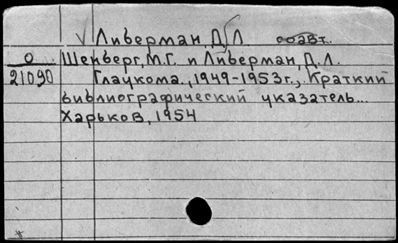 Либерман, Д Л. соавт.
О Шенберг, М.Г. и Либерман, Д. Л.
21090 Глаукома., 1949-1953г., Краткий
библиографический указатель...
Харьков, 1954